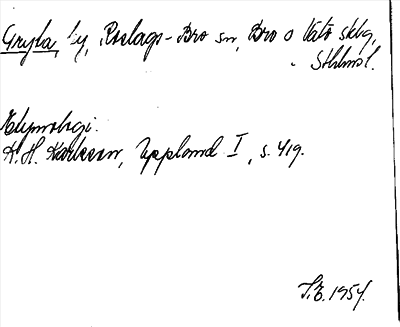 Gryta, by, Roslags-Bro sn, Bro o Vätö sklg,
Sthlmsl.
Etymologi.
K. H. Karlsson, Uppland I, s. 419.
S.E. 1954.